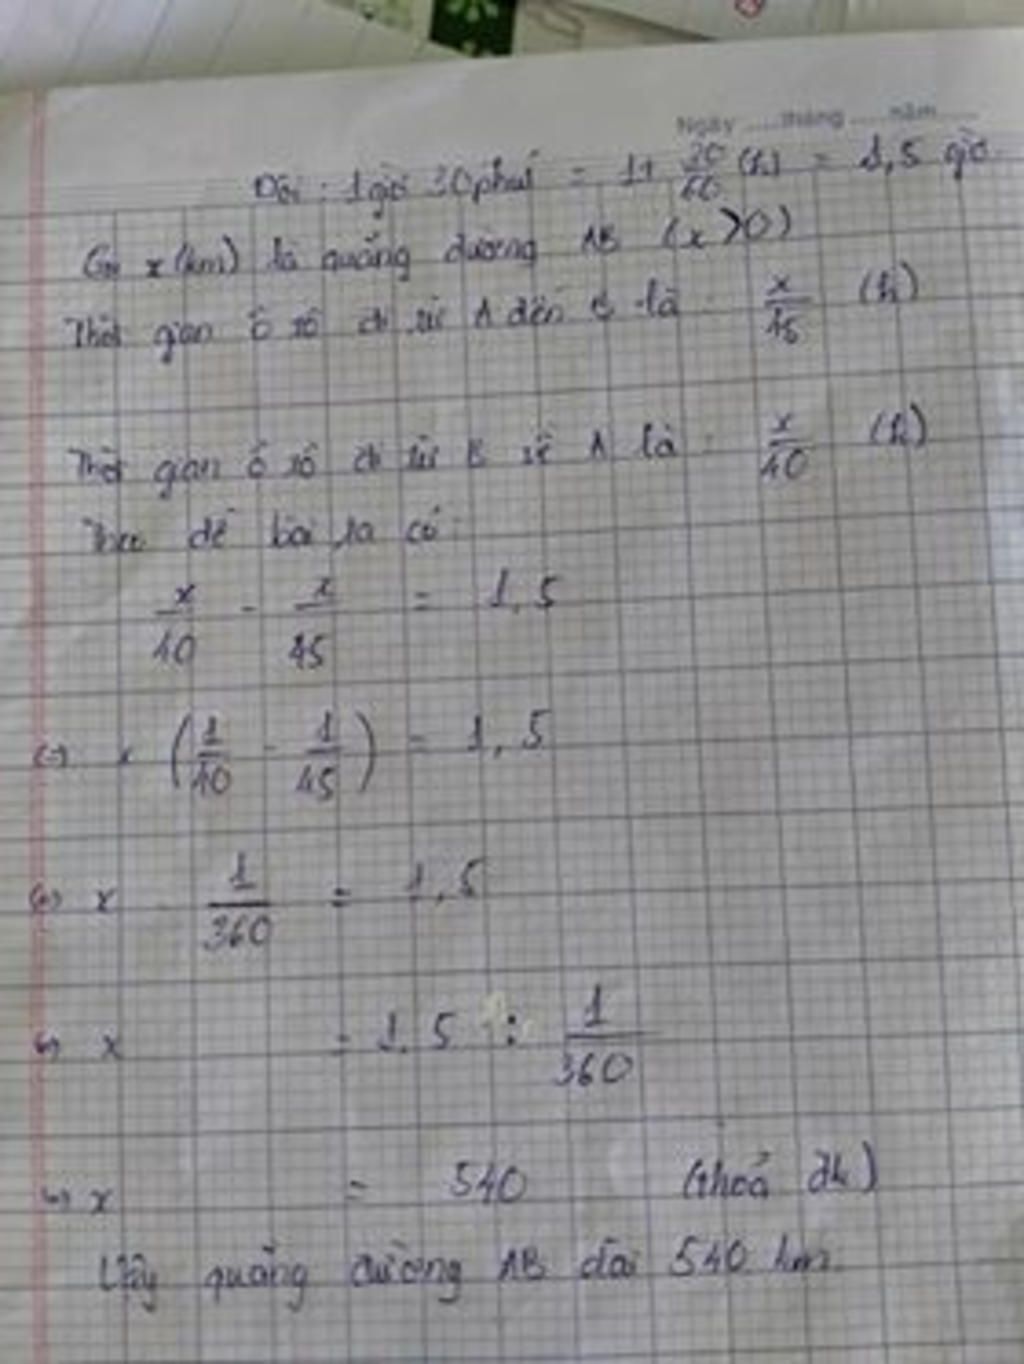 Ngày .....tháng .....năm.....
Đổi : 1 giờ 30 phút = 1 + 30/60 (h) = 1,5 giờ
Gọi x (km) là quãng đường AB (x > 0)
Thời gian ô tô đi từ A đến B là : x/45 (h)
Thời gian ô tô đi từ B về A là : x/40 (h)
Theo đề bài ta có :
x/40 - x/45 = 1,5
(=) x (1/40 - 1/45) = 1,5
(=) x 1/360 = 1,5
(=) x = 1,5 : 1/360
(=) x = 540 (thoả đk)
Vậy quãng đường AB dài 540 km.